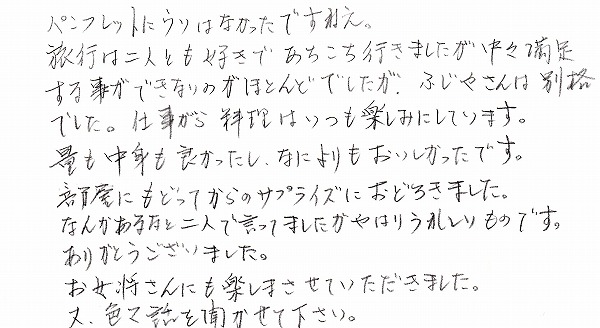 パンフレットにウソはなかったですねえ。
旅行は二人とも好きであちこち行きましたが中々満足
する事ができないのがほとんどでしたが、ふじやさんは別格
でした。仕事がら料理はいつも楽しみにしています。
量も中身も良かったし、なによりもおいしかったです。
部屋にもどってからのサプライズにおどろきました。
なんかあるなと二人で言ってましたがやはりうれしいものです。
ありがとうございました。
お女将さんにも楽しまさせていただきました。
又、色々話を聞かせて下さい。